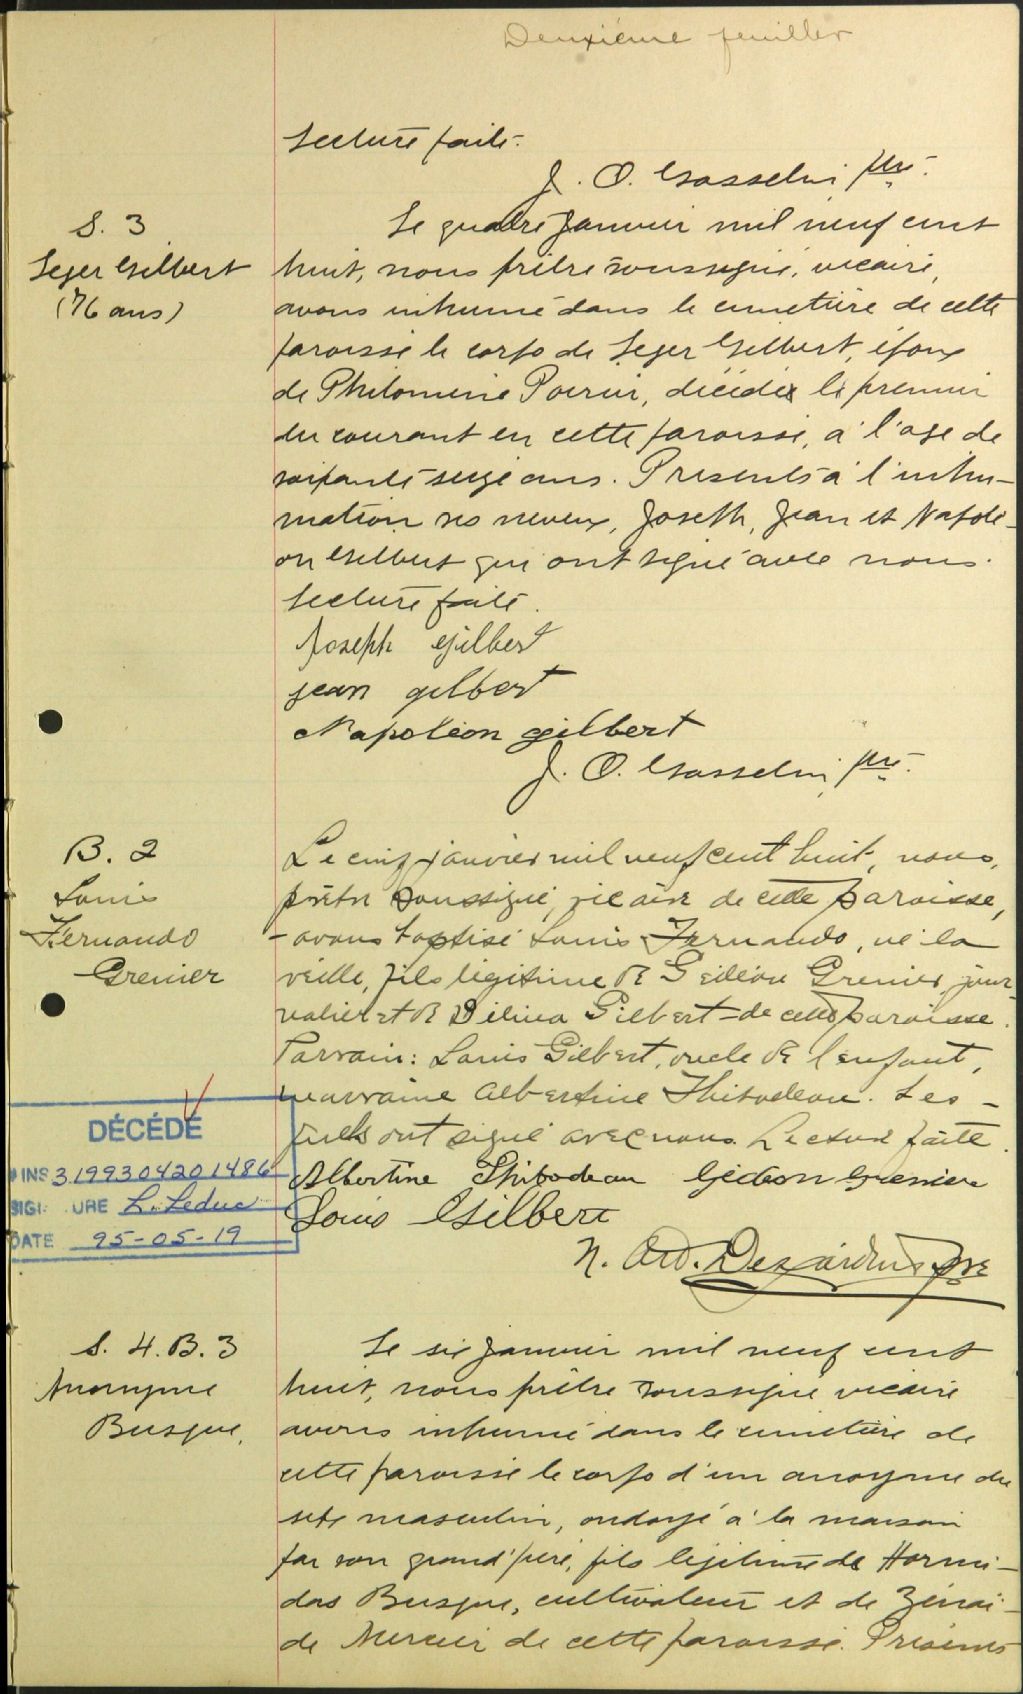 Deuxième feuillet
Lecture faite.
J. O. Gosselin ptre.
S. 3
Leger Gilbert
(76 ans)
Le quatre janvier mil neuf cent
huit, nous prêtre soussigné, vicaire,
avons inhumé dans le cimetière de cette
paroisse le corps de Leger Gilbert, époux
de Philomène Poirier, décédé le premier
du courant en cette paroisse, à l'age de
soixante-seize ans. Présents à l'inhu-
mation ses neveux, Joseph, Jean et Napolé-
on Gilbert qui ont signé avec nous.
Lecture faite.
Joseph Gilbert
jean gilbert
Napoléon gilbert
J. O. Gosselin, ptre.
B. 2
Louis
Fernando
Grenier
Le cinq janvier mil neuf cent huit, nous,
prêtre soussigné, vicaire de cette paroisse,
avons baptisé Louis Fernando, né la
veille, fils légitime de Gédéon Grenier, jour-
nalier et de Délina Gilbert de cette paroisse.
Parrain: Louis Gilbert, oncle de l'enfant,
marraine Albertine Thibodeau. Les-
quels ont signé avec nous. Lecture faite.
Albertine Thibodeau Gédéon Grenier
Louis Gilbert
N. Desjardins ptre
DÉCÉDÉ
# INS 3199304201486
SIGNATURE L. Leduc
DATE 95-05-19
S. 4. B. 3
Anonyme
Busque.
Le six janvier mil neuf cent
huit, nous prêtre soussigné vicaire
avons inhumé dans le cimetière de
cette paroisse le corps d'un anonyme du
sexe masculin, ondoyé à la maison
par son grand'père, fils légitime de Hormi-
das Busque, cultivateur et de Zénaï-
de Mercier de cette paroisse. Présents